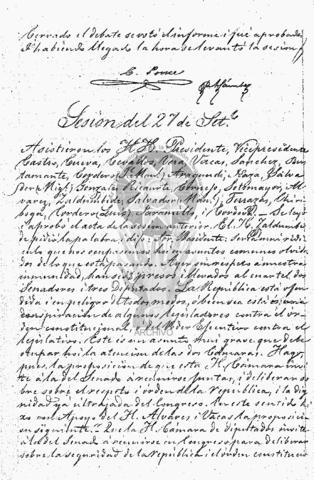 Cerrado el debate se votó el informe i fué aprobado.
I habiendo llegado la hora se levantó la sesion.
C. Ponce
Sesion del 27 de Set.
Asistieron los H.H. Presidente, Vicepresidente
Castro, Cueva, Cevallos, Vacas, Sanchez, Bus-
tamante, Cordero (Mur.) Arosemena, Daza, Salva-
dor (Mig.) Gonzales, Ricaurte, Cornejo, Sotomayor, Al-
varez, Zaldumbide, Salvador (Man.), Terrazas, Chiri-
boga, Cordero (Luis) Jaramillo, i Cordova. Se leyó
i aprobó el acta de la sesion anterior. El H. Zaldumbi-
de pidió la palabra i dijo: Sr. Presidente,
en la que nos ocupamos en momentos comunes olvida-
dos de lo que está pasando. Ayer con excepcion a nuestra in-
munidad, han sido presos i llevados al cuartel dos
Senadores i tres Diputados. La República está ofendi-
da i en peligro de todos modos, o bien sea esta
conspiracion de algunos lejisladores contra el ór-
den constitucional, o del Poder Ejecutivo contra el
lejislativo. Este es un asunto mui grave que debe
ocupar hoi la atencion de las dos Cámaras. Hago,
pues, la proposicion de que esta H. Cámara invi-
te á la del Senado á reunirse juntas, i deliberar so-
bre sobre el respeto i órden de la República, i la dig-
nidad ya ultrajada del Congreso. En este sentido hi-
zo con apoyo del H. Alvarez i Vacas la proposicio-
n siguiente: "Que la H. Cámara de Diputados invite
á la del Senado á reunirse en Congreso para deliberar
sobre la seguridad de la República i el órden constitucio-